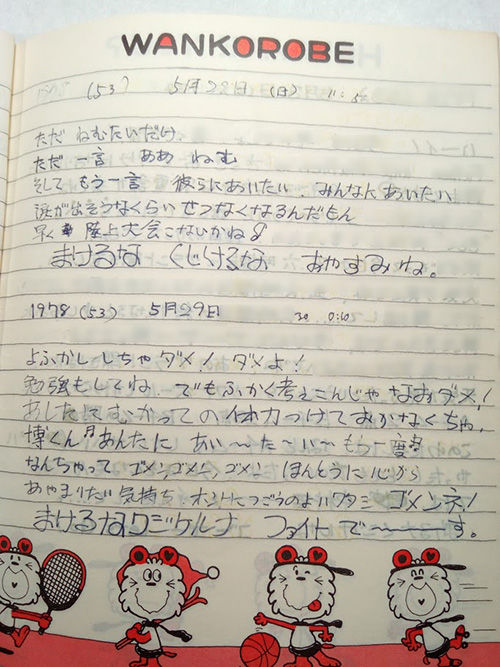 WANKOROBE
(53) 5月28日 (日)
ただ ねむたいだけ、
ただ 一言 ああ ねむ
そして もう一言 彼らにあいたい、みんなにあいたい
涙が出そうなくらい せつなくなるんだもん
早く 陸上大会こないかね
まけるな くじけるな おやすみね。
1978 (53) 5月29日 0:10
よふかし しちゃ ダメ! ダメよ!
勉強もしてね、でもふかく考えこんじゃ、なおダメ!
あしたにむかっての体力つけておかなくちゃ、
博くん あんたに あい〜た〜い〜 もう一度
なんちゃって ゴメン、ゴメン、ゴメン ほんとうに心から
あやまりたい気持ち、ホントにつごうのよいワタシ ゴメンネ!
まけるなクジケルナ ファイトで〜す。